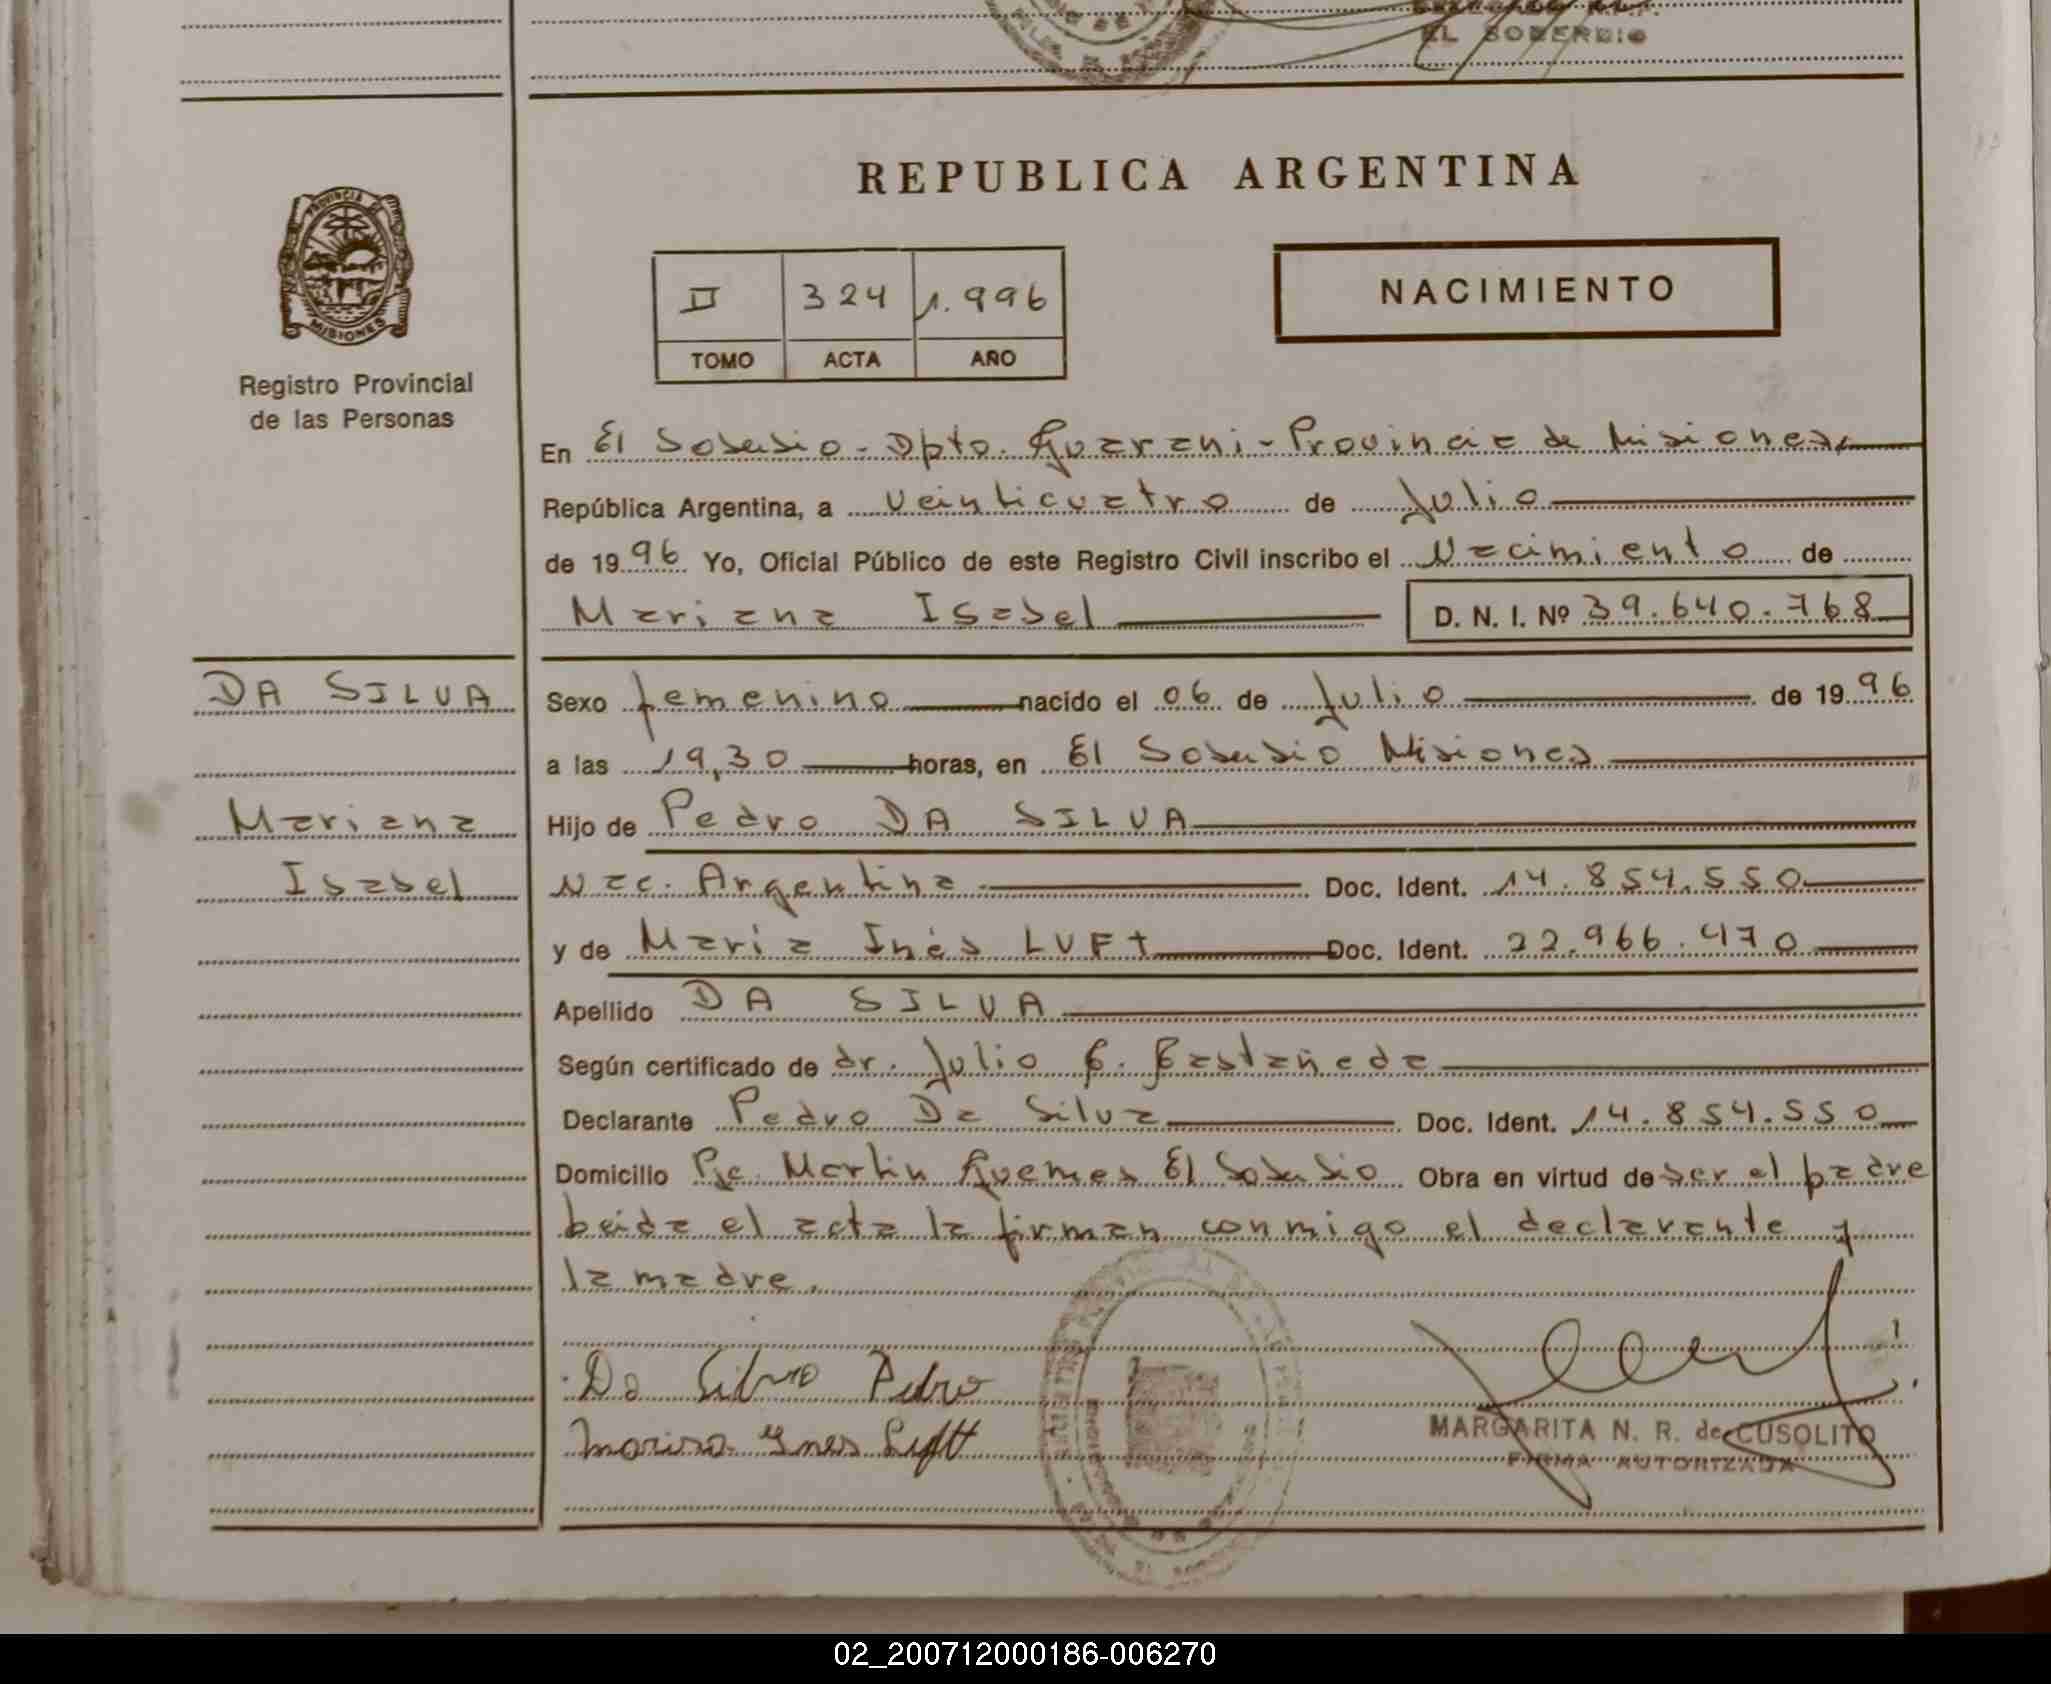 EL SOBERBIO
REPUBLICA ARGENTINA
PROVINCIA DE
MISIONES
Registro Provincial
de las Personas
II 324 1.996
TOMO ACTA AÑO
NACIMIENTO
En El Soberbio - Dpto. Guarani - Provincia de Misiones
República Argentina, a veinticuatro de Julio
de 1996 Yo, Oficial Público de este Registro Civil inscribo el Nacimiento de
Mariana Isabel D. N. I. Nº 39.640.768
DA SILVA
Mariana
Isabel
Sexo femenino nacido el 06 de Julio de 1996
a las 19,30 horas, en El Soberbio Misiones
Hijo de Pedro DA SILVA
Nac. Argentina Doc. Ident. 14.854.550
y de Maria Inés LUFt Doc. Ident. 22.966.470
Apellido DA SILVA
Según certificado de dr. Julio C. Castañeda
Declarante Pedro Da Silva Doc. Ident. 14.854.550
Domicilio Pje. Martin Guemes El Soberbio Obra en virtud de ser el padre
Leida el acta la firman conmigo el declarante y
la madre.
Da Silva Pedro
Ynes Luft
MARGARITA N. R. de CUSOLITO
FIRMA AUTORIZADA
02_200712000186-006270